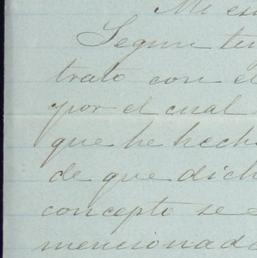 Mi es
Segun tu
trato con el
por el cual
que he hech
de que dich
concepto se
mencionad